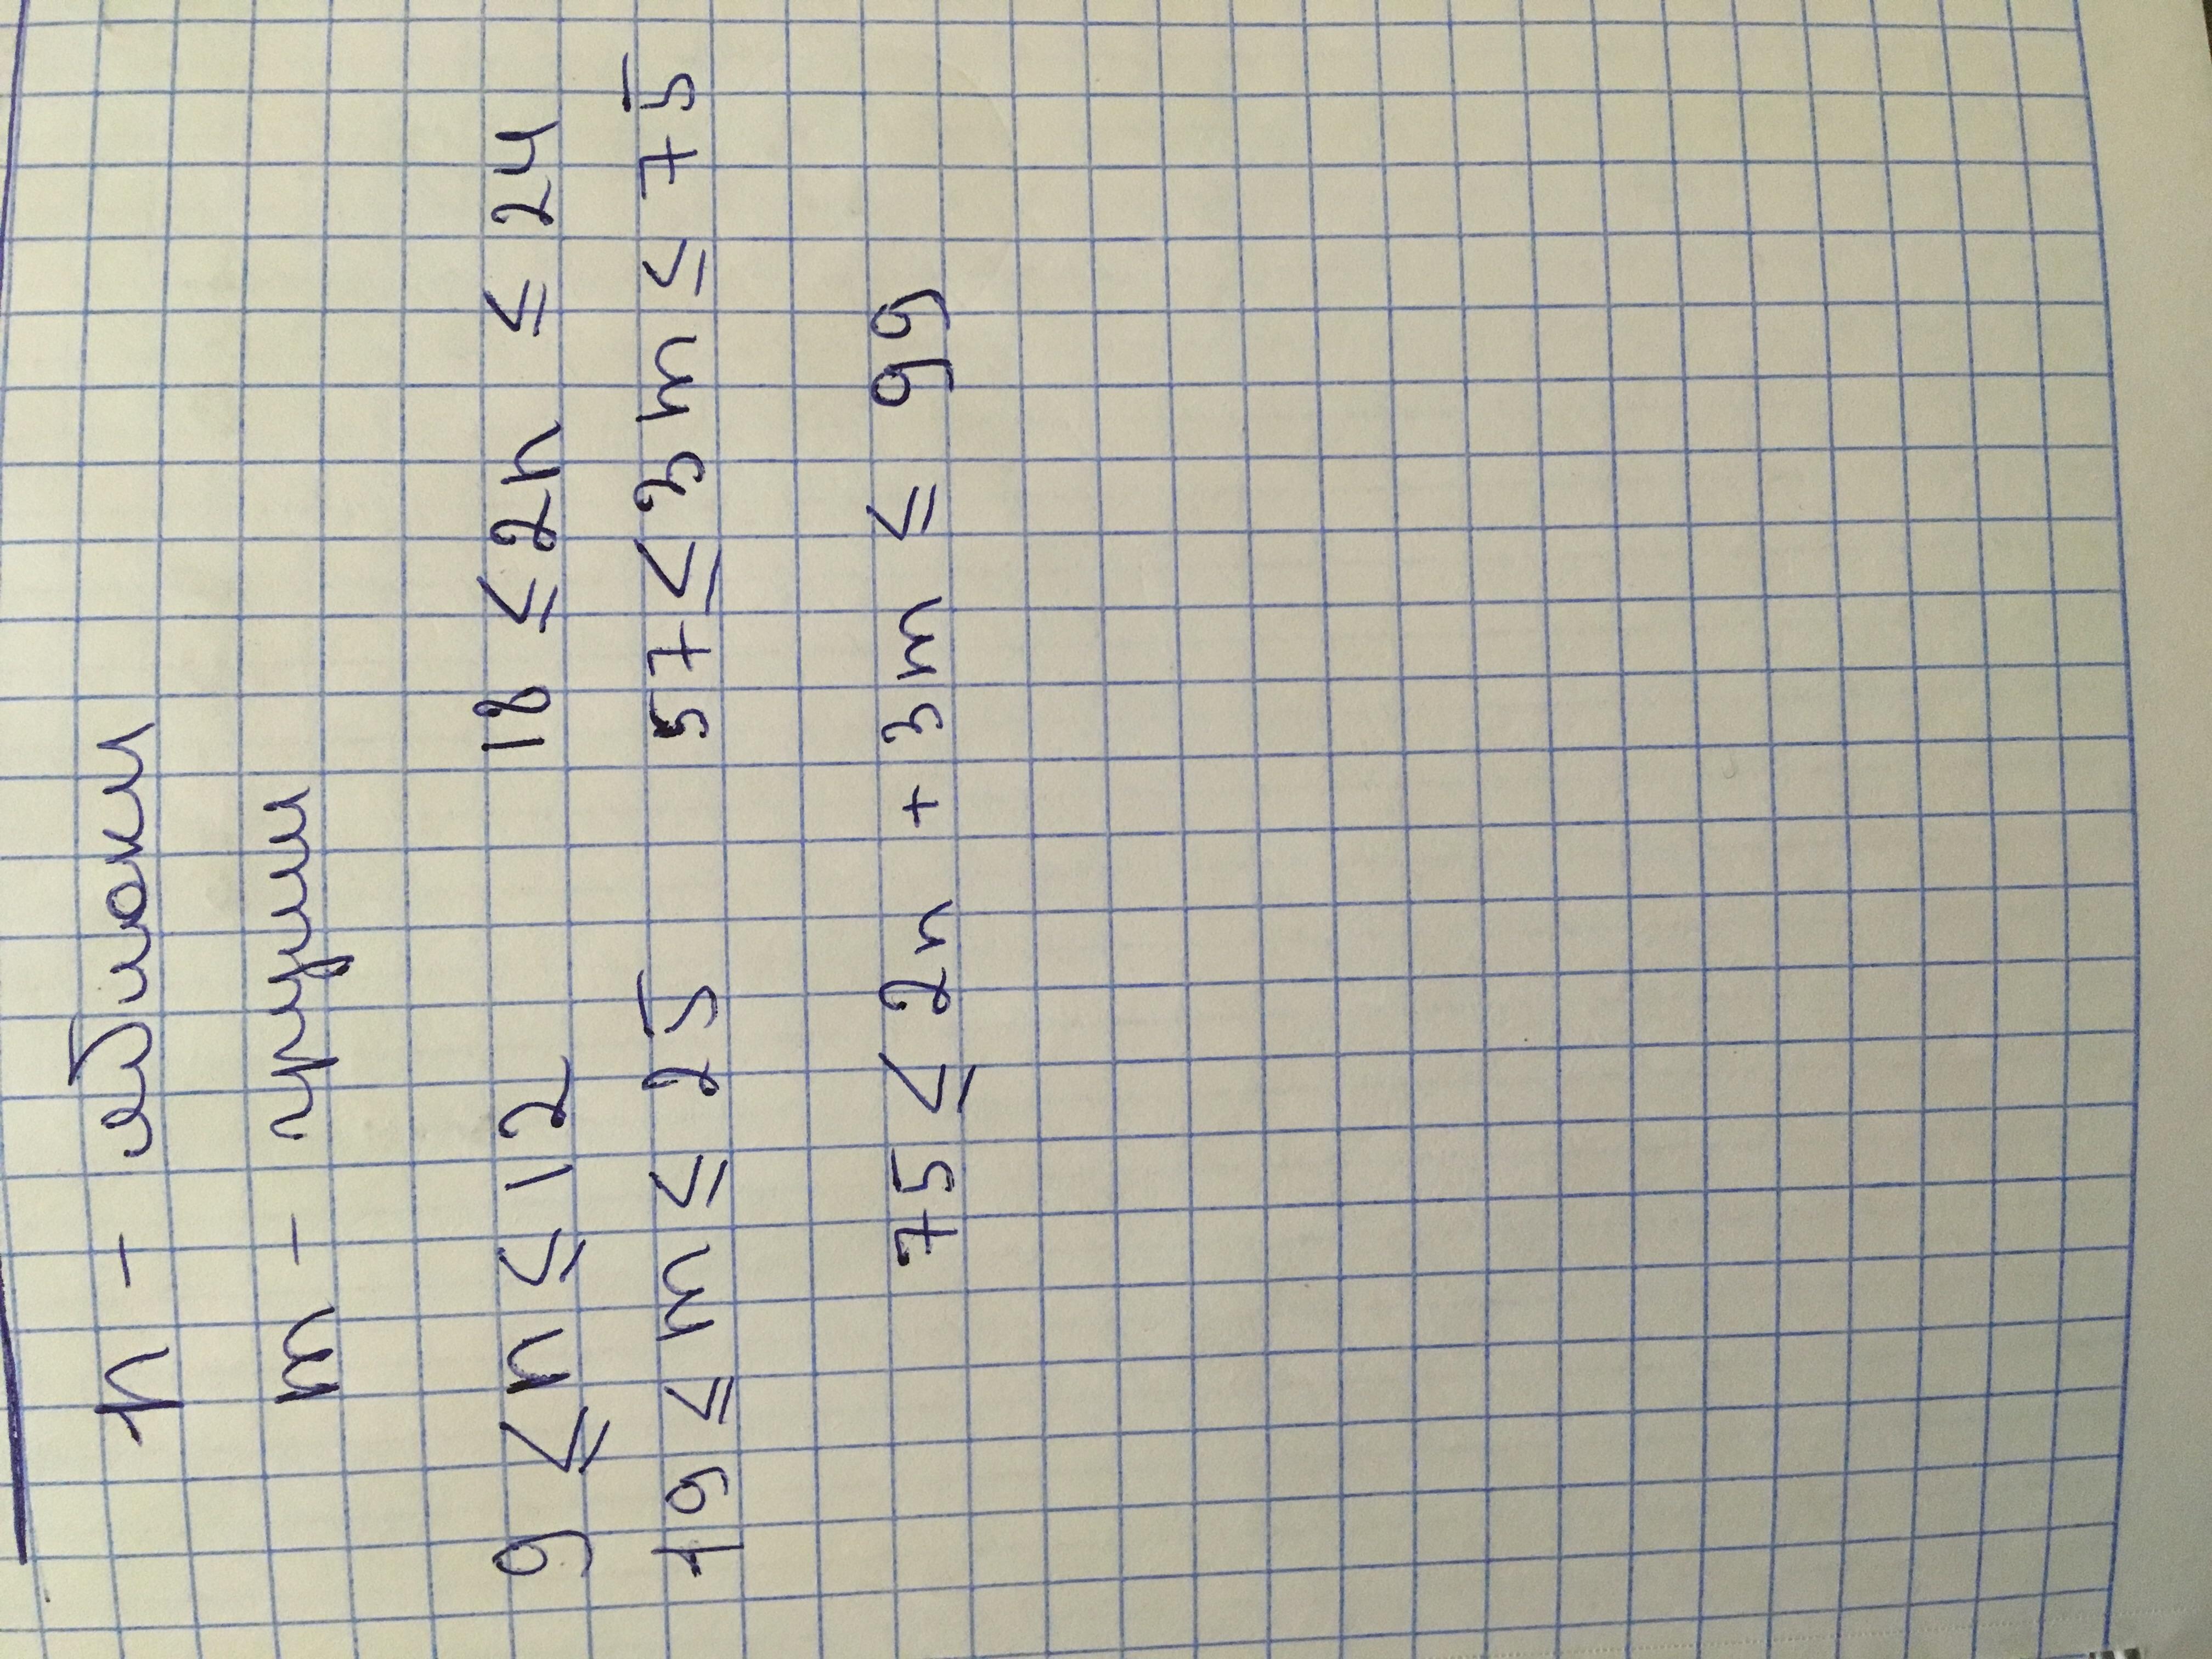 n - яблоки
m - груши
9 ≤ n ≤ 12 18 ≤ 2n ≤ 24
19 ≤ m ≤ 25 57 ≤ 3m ≤ 75
75 ≤ 2n + 3m ≤ 99